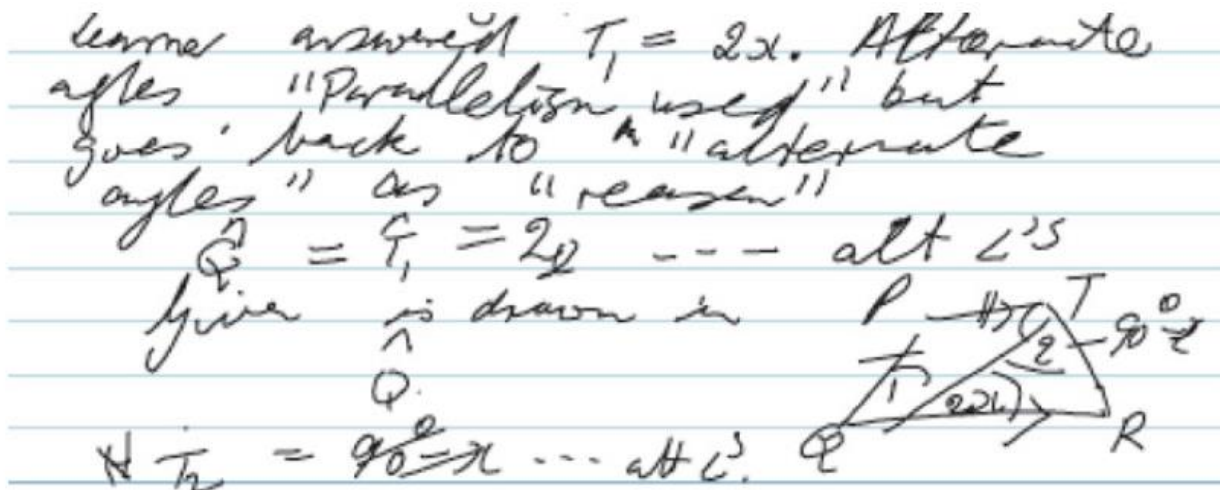 learner answered T₁ = 2x. Alternate
agles "Parallelism used" but
goes back to "alternate
angles" as "reason"
Q̂ = T̂₁ = 2x --- alt ∠'s
Given is drawn in P T
Q̂.
2 90°-x
1 2x
Q R
T₂ = 90°-x --- alt ∠'s.